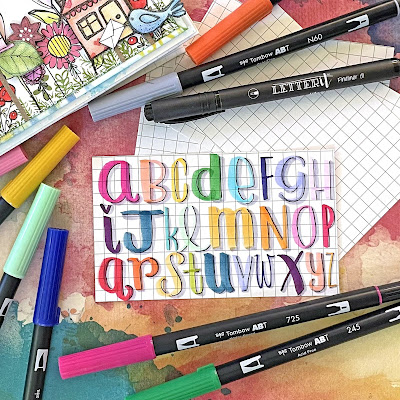 N60
Tombow ABT
LETTER it Fineliner
aBCdeFGH
iJklmNOP
qrstuvwxyz
Tombow ABT 725
Tombow ABT 245
Acid Free